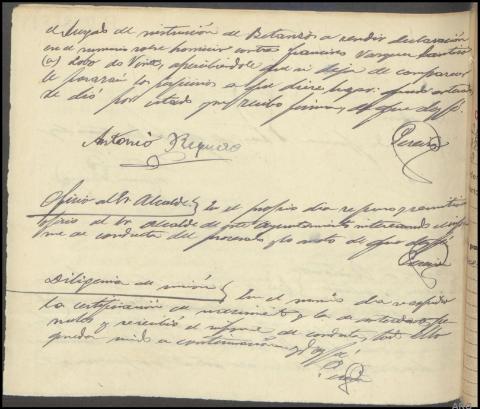 el Juzgado de instrucción de Betanzos a rendir declaración
en el sumario sobre homicidio contra Francisco Vazquez
(a) Lobo de Vinte, apercibiendole que si deja de comparecer
le pararán los perjuicios a que diere lugar: quedó enterado
se dió por citado y recibo firma, de que doy fé.
Antonio Regueiro
Pereira
Oficio al Sr. Alcalde En el propio dia se puso y remitió
oficio al Sr. Alcalde de este Ayuntamiento interesando el infor
me de conducta del procesado, lo anoto de que doy fé
Pereira
Diligencia de unión En el mismo dia
la certificación de nacimiento y la de antecedentes pe-
nales y se recibió el informe de conducta, todo ello
queda unido a continuación y doy fé.
ARG